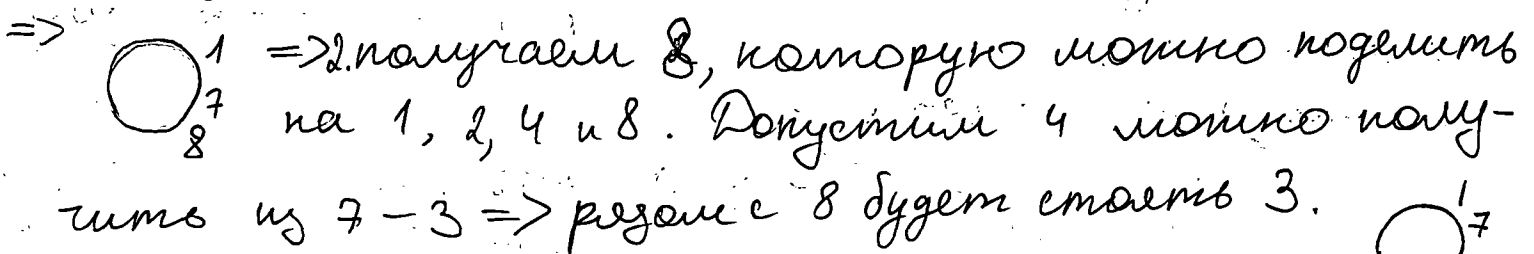 => 1 => 2. получаем 8, которую можно поделить
7 на 1, 2, 4 и 8. Допустим 4 можно полу-
8
чить из 7 - 3 => рядом с 8 будет стоять 3.
1
7